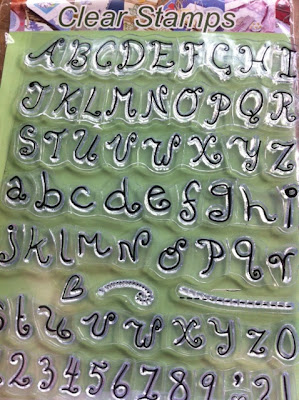 Clear Stamps
A B C D E F G H I
J K L M N O P Q R
S T U V W X Y Z
a b c d e f g h i
j k l m n o p q r
s t u v w x y z 0
1 2 3 4 5 6 7 8 9 . ? !